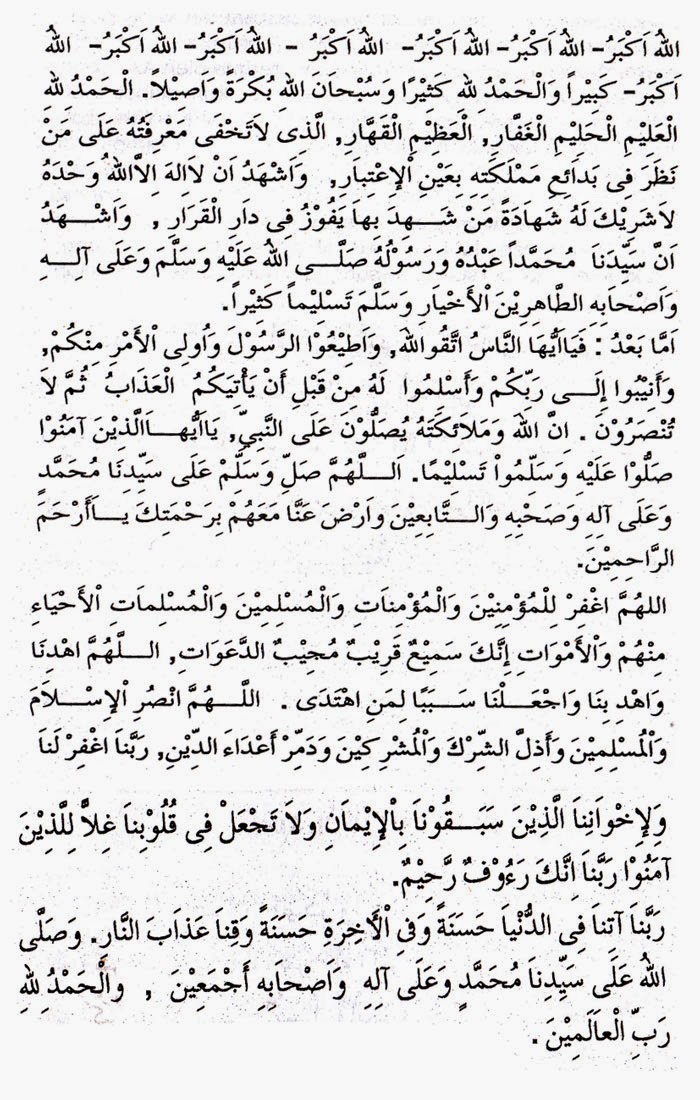 اللهُ اَكْبَرُ– اللهُ اَكْبَرُ– اللهُ اَكْبَرُ– اللهُ اَكْبَرُ – اللهُ اَكْبَرُ– اللهُ اَكْبَرُ– اللهُ
اَكْبَرُ– كَبِيْراً وَالْحَمْدُ لِلهِ كَثِيْرًا وَسُبْحَانَ اللهِ بُكْرَةً وَاَصِيْلاً. الْحَمْدُ لِلهِ
الْعَلِيْمِ الْحَلِيْمِ الْغَفَّارِ, الْعَظِيْمِ الْقَهَّارِ, الَّذِى لاَتَخْفَى مَعْرِفَتُهُ عَلَى مَنْ
نَظَرَ فِى بَدَائِعِ مَمْلَكَتِهِ بِعَيْنِ اْلإِعْتِبَارِ, وَاَشْهَدُ اَنْ لاَاِلهَ اِلاَّاللهُ وَحْدَهُ
لاَشَرِيْكَ لَهُ شَهَادَةً مَنْ شَـــهِدَ بِهاَ يَفُوْزُ فِى دَارِ الْقَرَارِ , وَاَشْـــهَدُ
اَنَّ سَيِّدَناَ مُحَمَّداً عَبْدُهُ وَرَسُوْلُهُ صَلَّـــى اللهُ عَلَيْهِ وَسَلَّمَ وَعَلَى آلِـــهِ
وَاَصْحَابِهِ الطَّاهِرِيْنَ اْلأَخْيَارِ وَسَلَّمَ تَسْلِيْماً كَثِيْراً.
اَمَّا بَعْدُ : فَيَااَيُّهَا النَّاسُ اتَّقُوااللهَ, وَاَطِيْعُوْا الرَّسُوْلَ وَاُولِى اْلأَمْرِ مِنْكُمْ,
وَأَنِيْبُوا إِلَـــى رَبِّكُمْ وَأَسْلِمُوا لَهُ مِنْ قَبْلِ أَنْ يَأْتِيَكُمُ الْعَذَابُ ثُمَّ لاَ
تُنْصَرُوْنَ . اِنَّ اللهَ وَمَلاَئِكَتَهُ يُصَلُّوْنَ عَلَى النَّبِيِّ, يَااَيُّهـــاَالَّذِيْنَ آمَنُوْا
صَلُّوْا عَلَيْهِ وَسَلِّمُواْ تَسْلِيْمًا. اَللَّهُمَّ صَلِّ وَسَلِّمْ عَلَى سَيِّدِنَا مُحَمَّدٍ
وَعَلَى آلِهِ وَصَحْبِهِ وَالـــتَّابِعِيْنَ وَارْضَ عَنَّا مَعَهُمْ بِرَحْمَتِكَ يـــاَأَرْحَمَ
الرَّاحِمِيْنَ.
اللهُمَّ اغْفِرْ لِلْمُؤْمِنِيْنَ وَالْمُؤْمِناَتِ وَالْمُسْلِمِيْنَ وَالْمُسْلِماَتِ اْلأَحْيَاءِ
مِنْهُمْ وَاْلأَمْوَاتِ إِنَّكَ سَمِيْعٌ قَرِيْبٌ مُجِيْبٌ الدَّعَوَاتِ, الـــلَّهُمَّ اهْدِنَا
وَاهْدِ بِنَا وَاجْعَـــلْنَا سَـــبَبًا لِمَنِ اهْتَدَى . اللَّـــهُمَّ انْصُرِ اْلإِسْـــلاَمَ
وَالْمُسْلِمِيْنَ وَأَذِلَّ الشِّرْكَ وَالْمُشْرِكِيْنَ وَدَمِّرْ أَعْدَاءَ الدِّيْنِ, رَبَّناَ اغْفِرْ لَناَ
وَلِإِخْوَانِناَ الَّذِيْنَ سَبَـــقُوْناَ بِاْلإِيْماَنِ وَلاَ تَجْعَلْ فِى قُلُوْبِناَ غِلاًّ لِلَّذِيْنَ
آمَنُوْا رَبَّناَ اِنَّكَ رَءُوْفٌ رَّحِيْمٌ.
رَبَّناَ آتِناَ فِى الدُّنْياَ حَسَنَةً وَفِى اْلأَخِرَةِ حَسَنَةً وَقِناَ عَذاَبَ النَّارِ. وَصَلَّى
اللهُ عَلَى سَيِّدِناَ مُحَمَّدٍ وَعَلَى آلِهِ وَاَصْحَابِهِ أَجْمَعِيْنَ , والْحَمْدُ لِلهِ
رَبِّ الْعاَلَمِيْنَ .